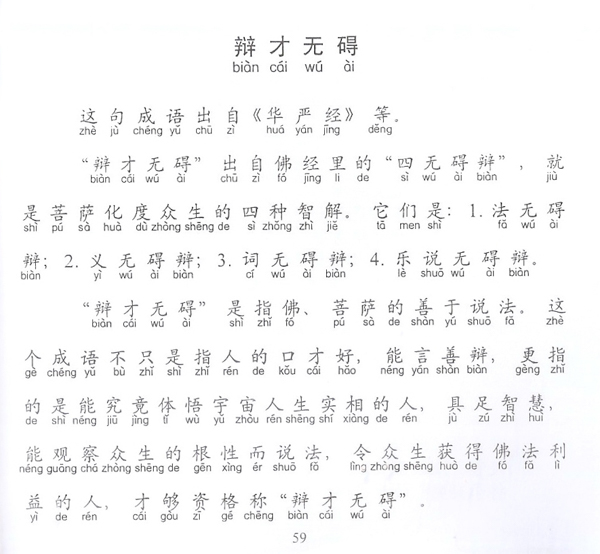 辩才无碍
biàn cái wú ài
这句成语出自《华严经》等。
zhè jù chéng yǔ chū zì huá yán jīng děng
“辩才无碍”出自佛经里的“四无碍辩”，就
biàn cái wú ài chū zì fó jīng li de sì wú ài biàn jiù
是菩萨化度众生的四种智解。它们是：1.法无碍
shì pú sà huà dù zhòng shēng de sì zhǒng zhì jiě tā men shì fǎ wú ài
辩；2.义无碍辩；3.词无碍辩；4.乐说无碍辩。
biàn yì wú ài biàn cí wú ài biàn lè shuō wú ài biàn
“辩才无碍”是指佛、菩萨的善于说法。这
biàn cái wú ài shì zhǐ fó pú sà de shàn yú shuō fǎ zhè
个成语不只是指人的口才好，能言善辩，更指
gè chéng yǔ bù zhǐ shì zhǐ rén de kǒu cái hǎo néng yán shàn biàn gèng zhǐ
的是能究竟体悟宇宙人生实相的人，具足智慧，
de shì néng jiū jìng tǐ wù yǔ zhòu rén shēng shí xiàng de rén jù zú zhì huì
能观察众生的根性而说法，令众生获得佛法利
néng guān chá zhòng shēng de gēn xìng ér shuō fǎ lìng zhòng shēng huò dé fó fǎ lì
益的人，才够资格称“辩才无碍”。
yì de rén cái gòu zī gé chēng biàn cái wú ài
59